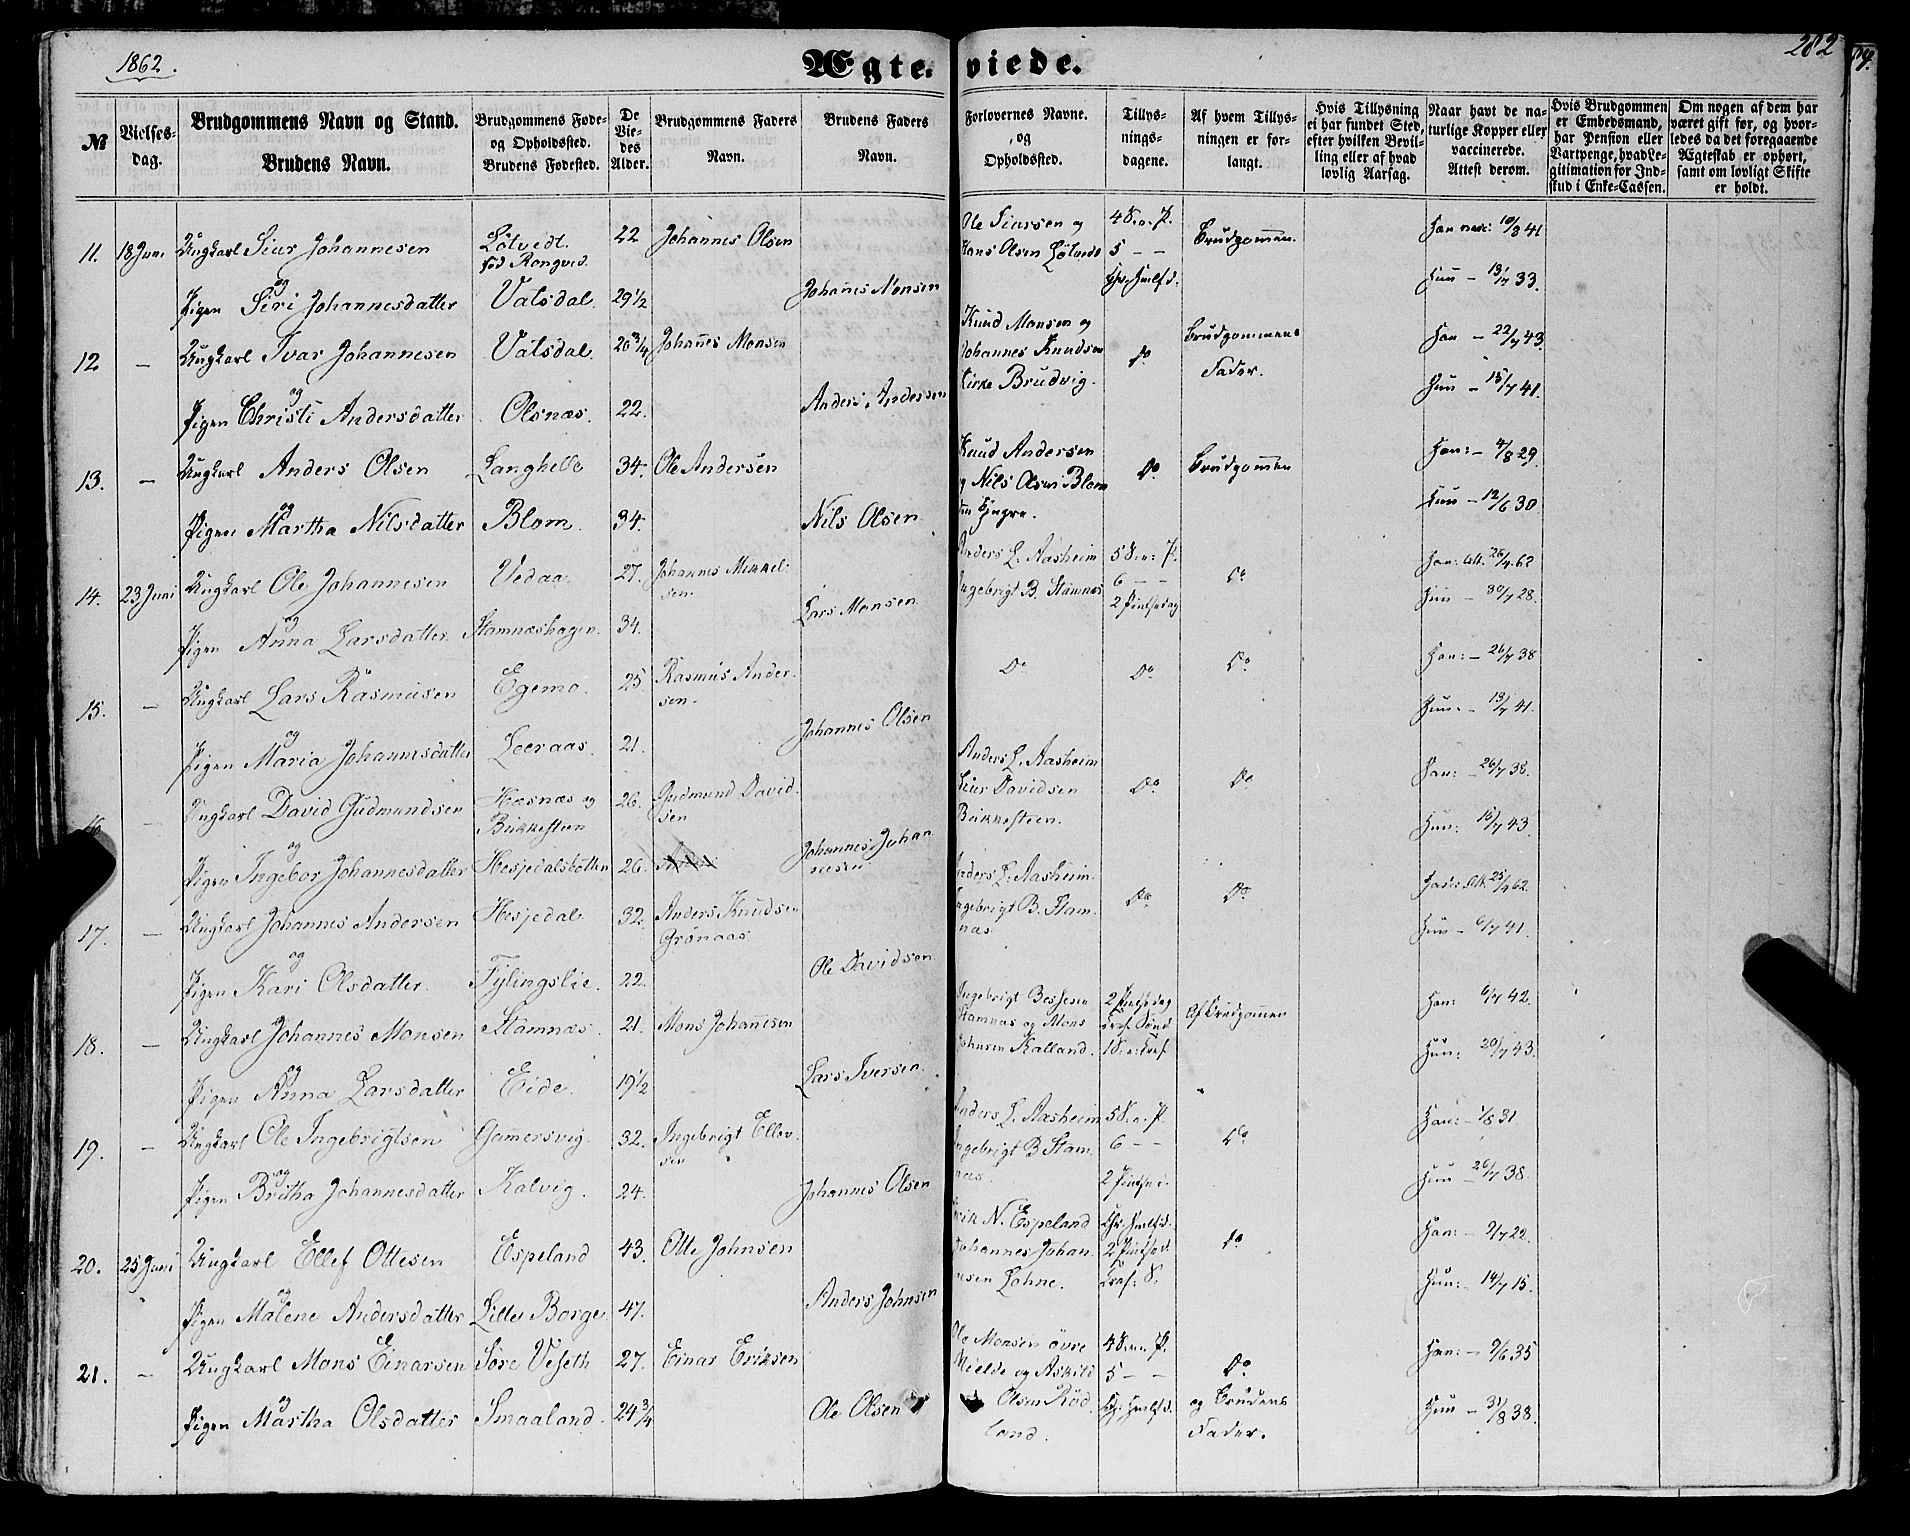 1862.
282
Ægte-viede.
No
Vielses-dag.
Brudgommens Navn og Stand.
Brudens Navn.
Brudgommens Føde- og Opholdssted.
Brudens Fødested.
De Viedes Alder.
Brudgommens Faders Navn.
Brudens Faders Navn.
Forlovernes Navne. og Opholdssted.
Tillysningsdagene.
Af hvem Tillysningen er forlangt.
Hvis Tillysning ei har fundet Sted, efter hvilken Bevilling eller af hvad lovlig Aarsag.
Naar havt de naturlige Kopper eller vaccinerede. Attest derom.
Hvis Brudgommen er Embedsmand, har Pension eller Vartpenge, hvad Legitimation for Indskud i Enke-Cassen.
Om nogen af dem har været gift før, og hvorledes da det foregaaende Ægteskab er ophørt, samt om lovligt Skifte er holdt.
11. 18 Juni Ungkarl Siur Johannesen Lötvedt. fød Rongved. 22 Johannes Olsen
Ole Siursen og Hans Olsen Lötvedt 4 S. e. P. 5 - - Brudgommen. Han vacc: 19/8 41
og
Pigen Siri Johannesdatter Valsdal. 29 1/2 Johannes Monsen Hun - 13/7 33.
12 - Ungkarl Ivar Johannesen Valsdal. 26 3/4 Johannes Monsen
Knud Monsen og Johannes Knudsen Kirke Brudvig. Do Brudgommens Fader. Han - 22/7 43.
og
Pigen Christi Andersdatter Olsnæs. 22. Anders Andersen Hun - 15/7 41.
13. - Ungkarl Anders Olsen Langhelle 34. Ole Andersen
Knud Andersen og Nils Olsen Blom Do Brudgommen Han: - 4/8 29.
og
Pigen Martha Nilsdatter Blom. 34. Nils Olsen Hun - 12/6 30
14. 23 Juni Ungkarl Ole Johannesen Vedaa. 27. Johannes Mikkelsen.
Anders L. Aasheim Ingebrigt B. Stamnæs 5 S. e. P. 6 - - 2 Pintsedag Do Han: Att. 26/4 62
og
Pigen Anna Larsdatter Stamneshagen. 34. Lars Monsen Hun - 30/7 28.
15. - Ungkarl Lars Rasmusen Egemo. 25 Rasmus Andersen.
Do Do Do Han: - 26/7 38
og
Pigen Maria Johannesdatter Leeraas. 21. Johannes Olsen Hun: - 13/7 41.
16 - Ungkarl David Gudmundsen Hæsnæs og Bukkesteen 26. Gudmund Davidsen
Anders L. Aasheim Siur Davidsen Bukkesteen. Do Do Han: - 26/7 38.
og
Pigen Ingebor Johannesdatter Hesjedalsbotten 26. Johannes Johannesen Hun: 15/7 43.
17. - Ungkarl Johannes Andersen Hesjedal. 32. Anders Knudsen Grönaas
Anders L. Aasheim. Ingebrigt B. Stamnæs. Do Do Han: Att. 25/4 62.
og
Pigen Kari Olsdatter. Fylingslie. 22. Ole Davidsen Hun - 6/7 41.
18. - Ungkarl Johannes Monsen Stamnæs. 21. Mons Johannesen
Ingebrigt Stamnæs og Mons Kalland. 2 Pintsedag Tref. Sönd 1 S. e. Tref. Af Brudgommen Han: 6/7 42.
og
Pigen Anna Larsdatter Eide. 19 1/2 Lars Iversen. Hun: 20/7 43.
19. - Ungkarl Ole Ingebrigtsen Gamersvig. 32. Ingebrigt Ellevsen
Anders L. Aasheim Ingebrigt B. Stamnæs. 5 S. e. P. 6 - - 2 Pintsed. Do Han: - 1/8 31.
og
Pigen Britha Johannesdatter Kalvig. 24. Johannes Olsen Hun - 26/7 38.
20. 25 Juni Ungkarl Ellef Ottesen Espeland 43. Otte Johnsen
Erik N. Espeland Johannes Johannesen Lohne. 2 Pintsed. Tref: S. Do Han: - 9/7 22.
og
Pigen Malene Andersdatter Lille Borge 47. Anders Johnsen Hun: - 14/7 15.
21. - Ungkarl Mons Einarsen Söre Veseth 27. Einar Eriksen
Ole Monsen övre Mielde og Askild Olsen Rödland. 4 S. e. P. 5 - - Do og Brudens Fader. Han: - 9/6 35
og
Pigen Martha Olsdatter Smaaland. 24 3/4 Ole Olsen Hun - 31/8 38.